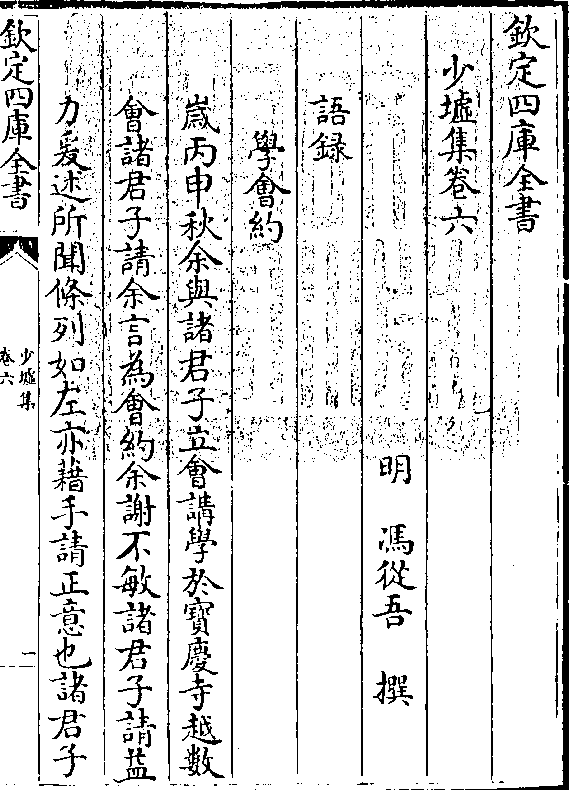 欽定四庫全書
少墟集卷六
明 馮從吾 撰
語録
學會約
歲丙申秋余與諸君子立會講學於寶慶寺越數
會諸君子請余言為會約余謝不敏諸君子請益
力爰述所聞條列如左亦藉手請正意也諸君子
欽定四庫全書
少墟集
卷六
一